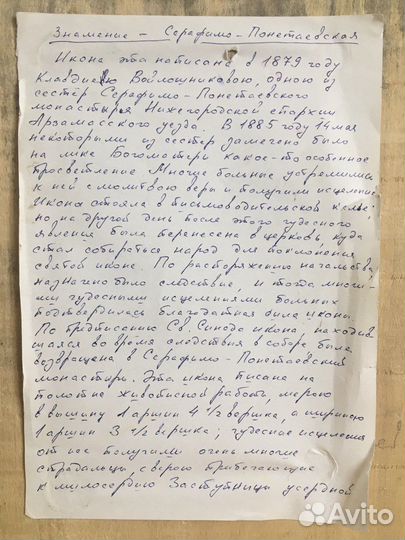 Знамение – Серафимо-Понетаевская
Икона эта написана в 1879 году
Клавдиею Войлошниковою, одною из
сестёр Серафимо-Понетаевского
монастыря Нижегородской епархии
Арзамасского уезда. В 1885 году 14 мая
некоторыми из сестёр замечено было
на лике Богоматери какое-то особенное
просветление. Многие больные устремились
к ней с молитвою веры и получили исцеление.
Икона стояла в письмоводительской келье,
но на другой день после этого чудесного
явления была перенесена в церковь, куда
стал собираться народ для поклонения
святой иконе. По распоряжению начальства
назначено было следствие, и тогда многи-
ми чудесными исцелениями больных
подтвердилась благодатная сила иконы.
По предписанию Св. Синода икона, находив-
шаяся во время следствия в соборе была
возвращена в Серафимо-Понетаевский
монастырь. Эта икона писана на
полотне живописной работы, мерою
в вышину 1 аршин 4 1/2 вершка, а шириною
1 аршин 3 1/2 вершка; чудесное исцеления
от нее получили очень многие
страдальцы, с верою прибегающие
к милосердию Заступницы усердной
Avito